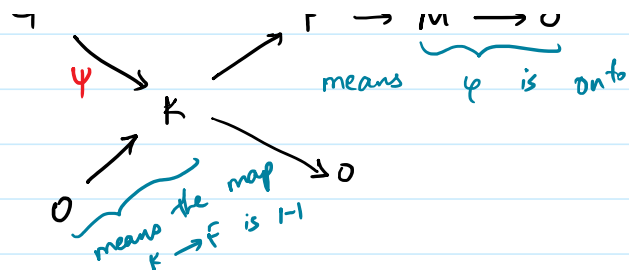 F → M → 0
means φ is onto
ψ
K
0
0
means the map
K → F is 1-1